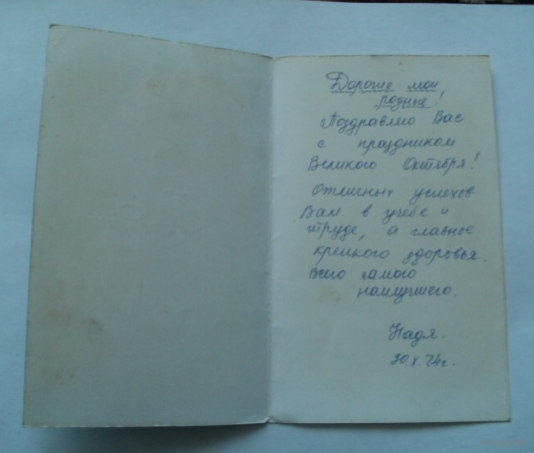 Дорогие мои
родные!
Поздравляю Вас
с праздником
Великого Октября!
Отличных успехов
Вам в учебе и
труде, а главное
крепкого здоровья.
Всего самого
наилучшего.
Надя.
30.X.74г.